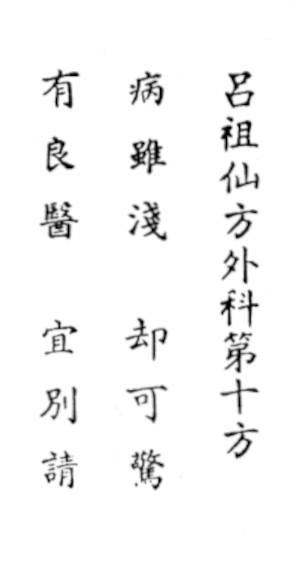 呂祖仙方外科第十方
病雖淺 却可驚
有良醫 宜別請